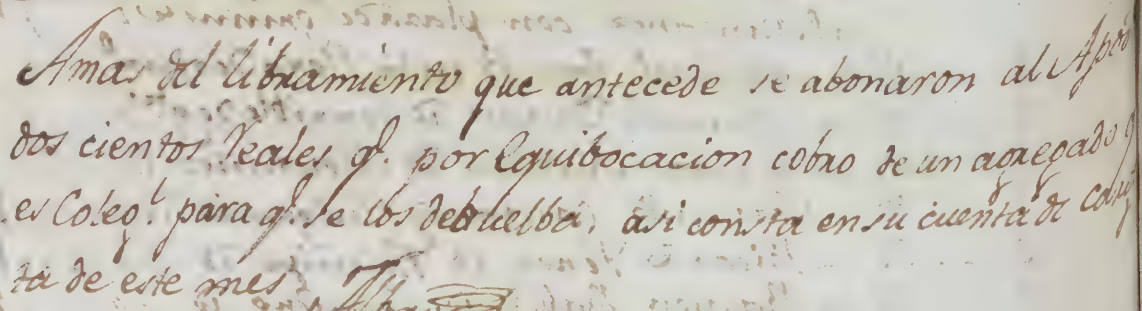 Amas del libramiento que antecede se abonaron al Apod
dos cientos Reales q.e por Equibocacion cobro de un agregado q
es Coleg.l para q.e se los debuelba, asi consta en su cuenta de
ta de este mes